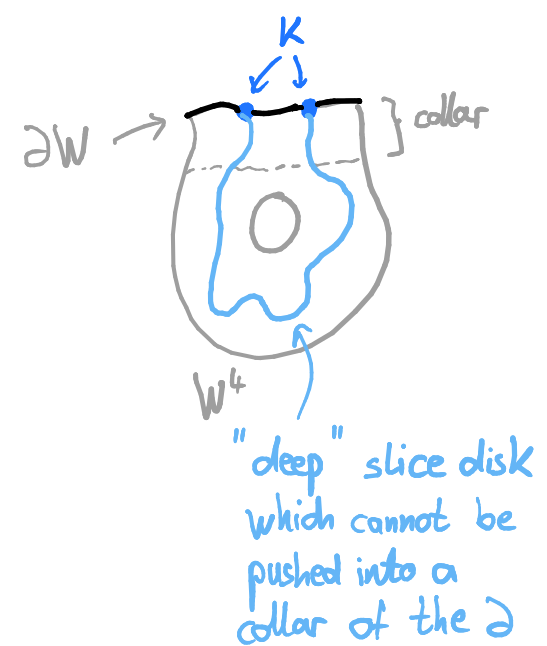 K
∂W
collar
W⁴
"deep" slice disk
which cannot be
pushed into a
collar of the ∂